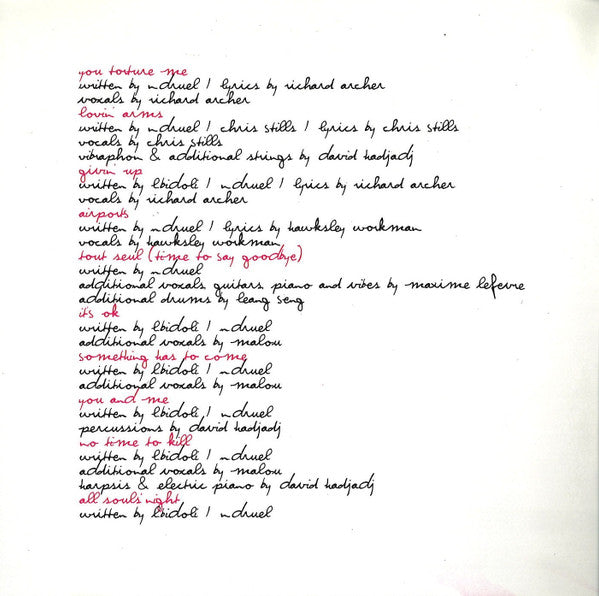 you torture me
written by ndruel / lyrics by richard archer
voxals by richard archer
lovin' arms
written by ndruel / chris stills / lyrics by chris stills
vocals by chris stills
vibraphon & additional strings by david hadjadj
givin' up
written by lbidoli / ndruel / lyrics by richard archer
vocals by richard archer
airports
written by ndruel / lyrics by hawksley workman
vocals by hawksley workman
tout seul (time to say goodbye)
written by ndruel
additional voxals, guitars, piano and vibes by maxime lefevre
additional drums by leang seng
it's ok
written by lbidoli / ndruel
additional voxals by malou
something has to come
written by lbidoli / ndruel
additional voxals by malou
you and me
written by lbidoli / ndruel
percussions by david hadjadj
no time to kill
written by lbidoli / ndruel
additional voxals by malou
harpsis & electric piano by david hadjadj
all souls' night
written by lbidoli / ndruel